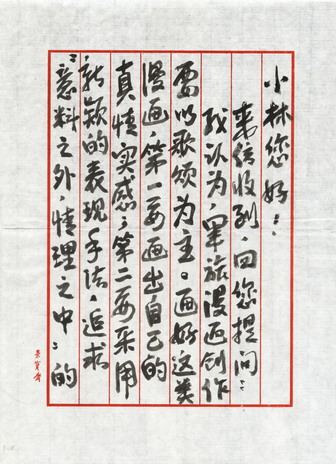 小林您好：
来信收到，回您提问：
我认为，军旅漫画创作
需以歌颂为主。画好这类
漫画，第一要画出自己的
真情实感；第二要采用
新颖的表现手法，追求
“意料之外，情理之中”的